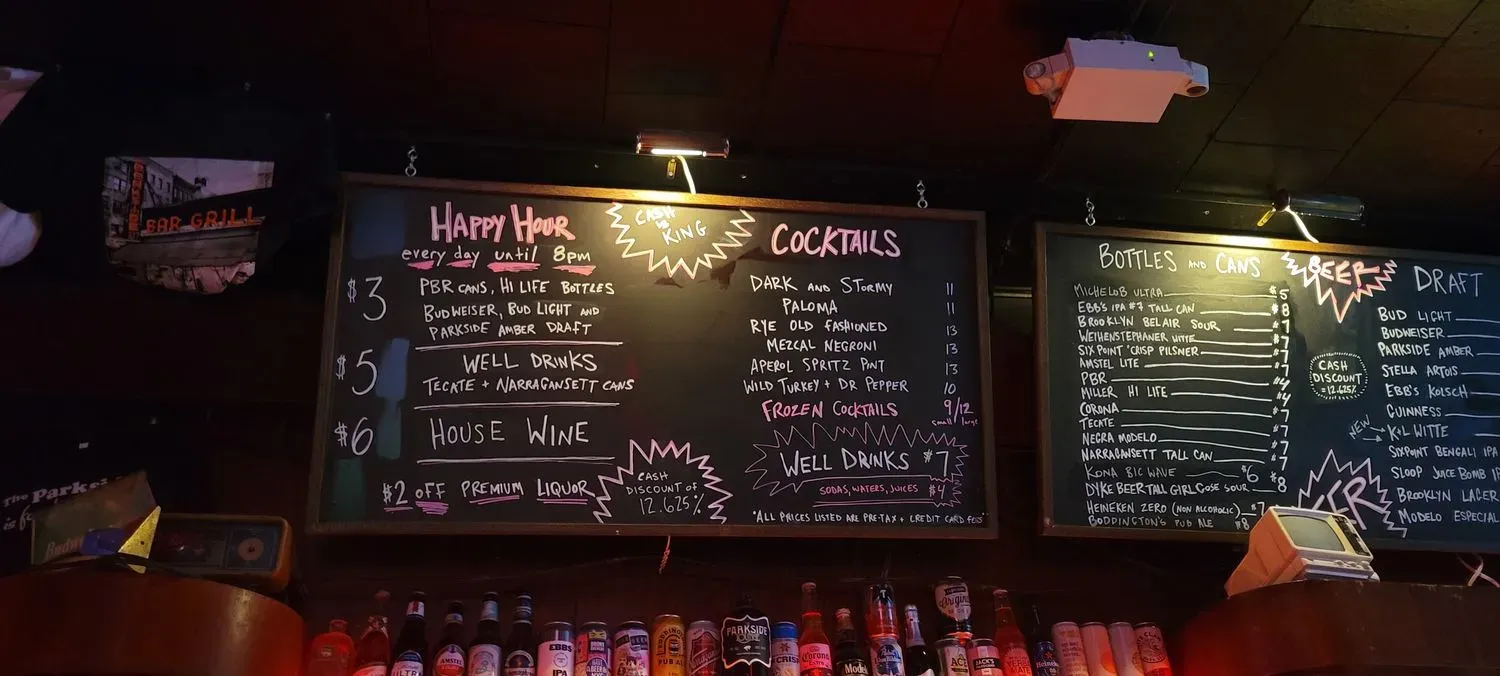 BAR GRILL
HAPPY HOUR
every day until 8pm
$3
PBR CANS, HI LIFE BOTTLES
BUDWEISER, BUD LIGHT AND
PARKSIDE AMBER DRAFT
$5
WELL DRINKS
TECATE + NARRAGANSETT CANS
$6
HOUSE WINE
$2 OFF PREMIUM LIQUOR
CASH
IS
KING
CASH
DISCOUNT OF
12.625%
COCKTAILS
DARK AND STORMY 11
PALOMA 11
RYE OLD FASHIONED 13
MEZCAL NEGRONI 13
APEROL SPRITZ PINT 13
WILD TURKEY + DR PEPPER 10
FROZEN COCKTAILS 9/12
small/large
WELL DRINKS $7
SODAS, WATERS, JUICES $4
*ALL PRICES LISTED ARE PRE-TAX + CREDIT CARD FEES
BOTTLES AND CANS
MICHELOB ULTRA $5
EBB'S IPA #7 TALL CAN $8
BROOKLYN BELAIR SOUR $7
WEIHENSTEPHANER WITTE $7
SIXPOINT CRISP PILSNER $7
AMSTEL LITE $7
PBR $4
MILLER HI LIFE $4
CORONA $7
TECATE $7
NEGRA MODELO $7
NARRAGANSETT TALL CAN $7
KONA BIG WAVE $6
DYKE BEER TALL GIRL GOSE SOUR $8
HEINEKEN ZERO (NON ALCOHOLIC) $7
BODDINGTON'S PUB ALE $8
BEER
CASH
DISCOUNT
= 12.625%
NEW
DRAFT
BUD LIGHT
BUDWEISER
PARKSIDE AMBER
STELLA ARTOIS
EBB'S KOLSCH
GUINNESS
K+L WITTE
SIXPOINT BENGALI IPA
SLOOP JUICE BOMB
BROOKLYN LAGER
MODELO ESPECIAL
The Parks
is f
ULTRA
AMSTEL
EBBS
IPA
PUB AL
PARKSIDE
LOUNGE
CRIS
Corona
EXTRA
Model
Original
JACK'S
Heinek